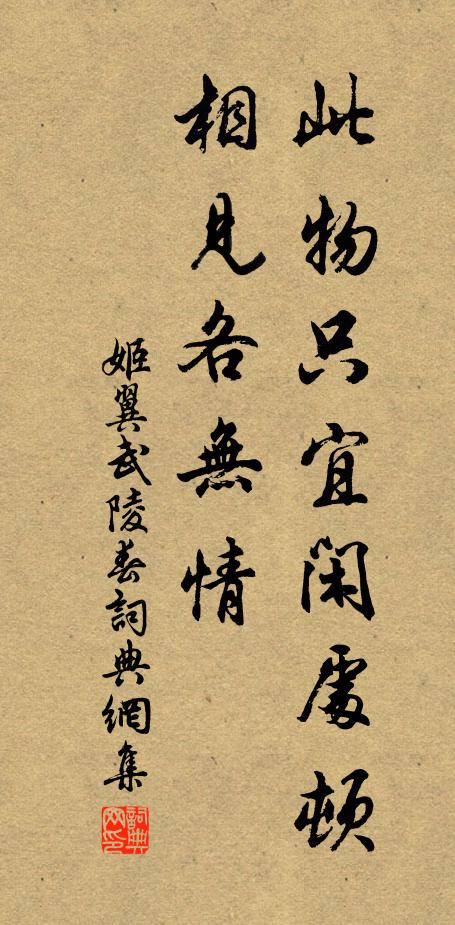 此物只宜閑處頓
相見各無情
姬翼武陵春詞典網集
詞典網印